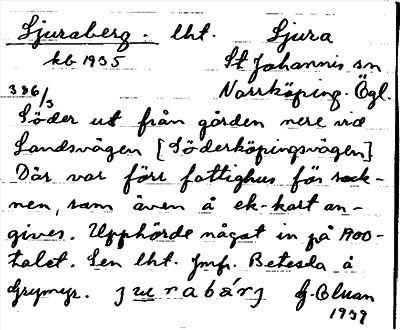 Ljuraberg. lht. Ljura
kb 1935 St Johannis sn
336/3 Norrköping. Ögl.
Söder ut från gården nere vid
Landsvägen [Söderköpingsvägen]
Där var förr fattighus för sock-
nen, som även å ek-kart an-
gives. Upphörde något in på 1900-
talet. Sen lht. Jmf. Betesda å
Grymyr. G. Olman
1939